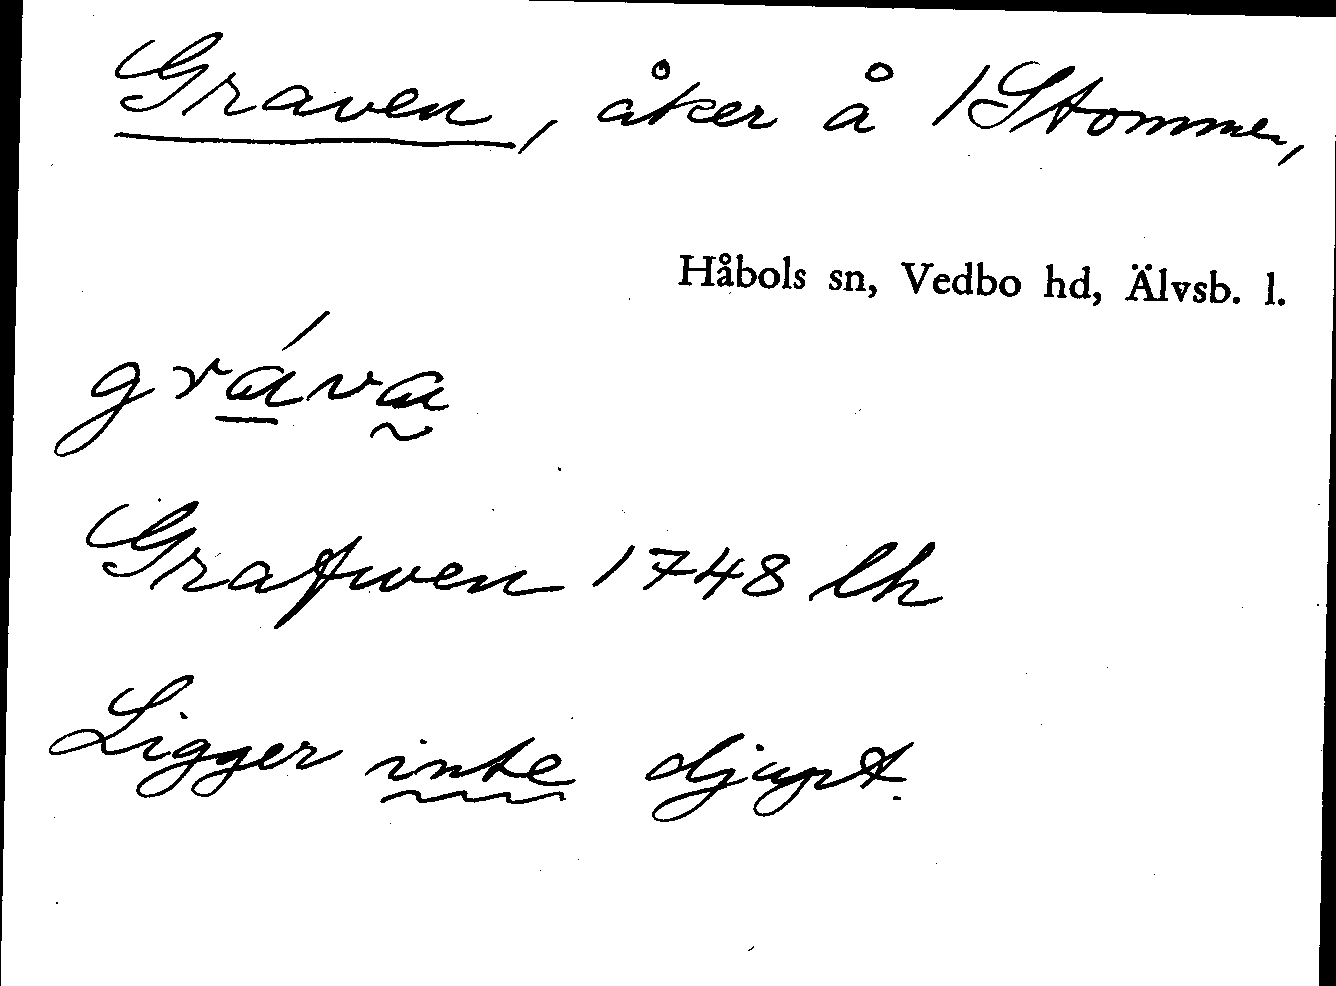 Graven, åker å 1 Stommen,
Håbols sn, Vedbo hd, Älvsb. l.
gráva
Grafwen 1748 lh
Ligger inte djupt.